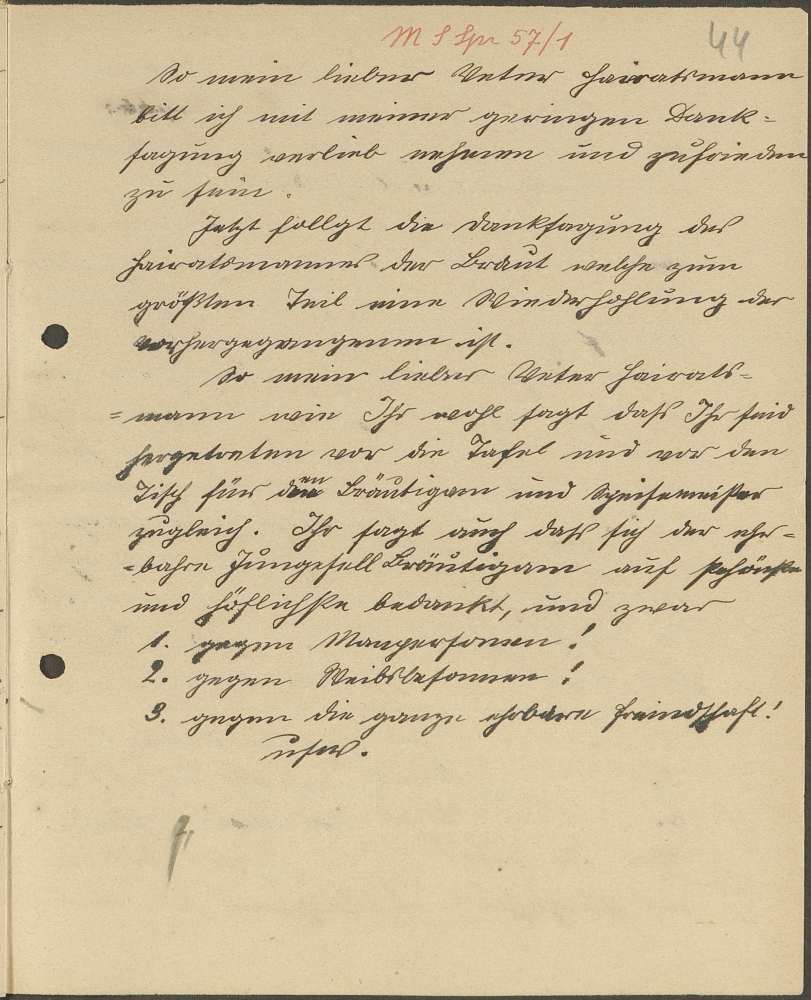 M S Spr 57/1
44
So mein lieber Veter Hairatsmann
bitt ich mit meiner geringen Dank=
sagung verlieb nehmen und zufrieden
zu sein.
Jetzt follgt die Danksagung des
Hairatsmannes der Braut welche zum
größten Teil eine Wiederhohlung der
vorhergegangenen ist.
So mein lieber Veter Hairats=
=mann wie Ihr wohl sagt daß Ihr seid
hergetreten vor die Tafel und vor den
Tisch für den Bräutigam und Speisemeister
zugleich. Ihr sagt auch daß sich der ehr=
=bahre Jungesell Bräutigam auf schönste
und höflichste bedankt, und zwar
1. gegen Manpersonen!
2. gegen Weibsbesonnen!
3. gegen die ganze ehrbare Freindschaft!
usw.